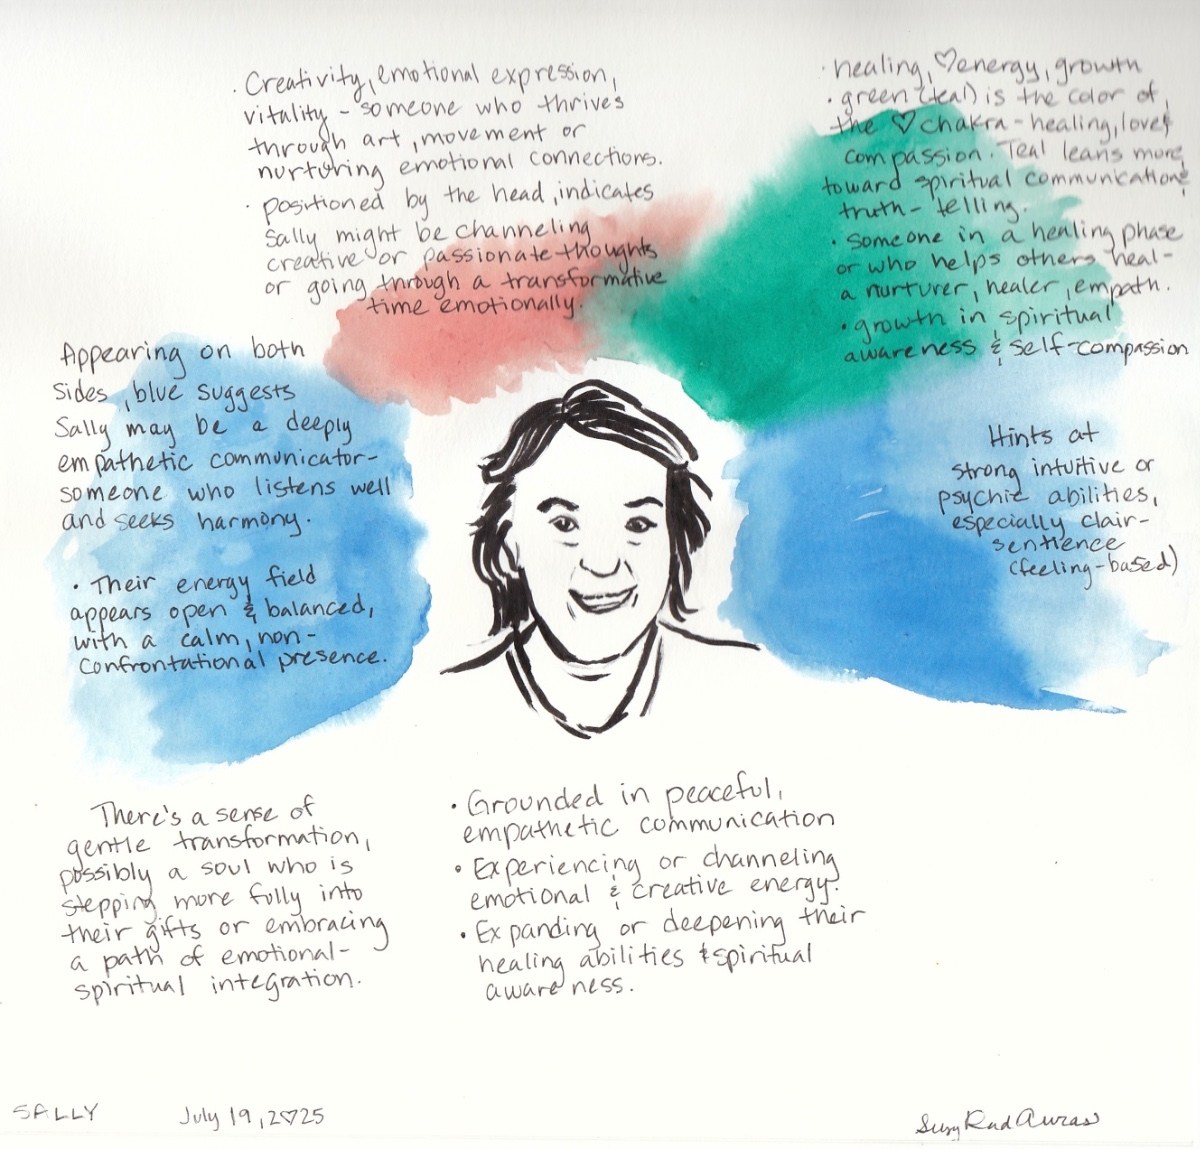 · Creativity, emotional expression,
vitality - someone who thrives
through art, movement or
nurturing emotional connections.
· positioned by the head, indicates
Sally might be channeling
creative or passionate thoughts
or going through a transformative
time emotionally.
· healing, ♡energy, growth
· green (teal) is the color of
the ♡ chakra - healing, love &
compassion. Teal leans more
toward spiritual communication &
truth - telling.
· Someone in a healing phase
or who helps others heal -
a nurturer, healer, empath.
· growth in spiritual
awareness & self-compassion
Appearing on both
sides, blue suggests
Sally may be a deeply
empathetic communicator -
someone who listens well
and seeks harmony.
· Their energy field
appears open & balanced,
with a calm, non-
confrontational presence.
Hints at
strong intuitive or
psychic abilities,
especially clair-
sentience
(feeling-based)
There's a sense of
gentle transformation,
possibly a soul who is
stepping more fully into
their gifts or embracing
a path of emotional-
spiritual integration.
· Grounded in peaceful,
empathetic communication
· Experiencing or channeling
emotional & creative energy.
· Expanding or deepening their
healing abilities & spiritual
awareness.
SALLY
July 19, 2♡25
Suzy Rad Auras